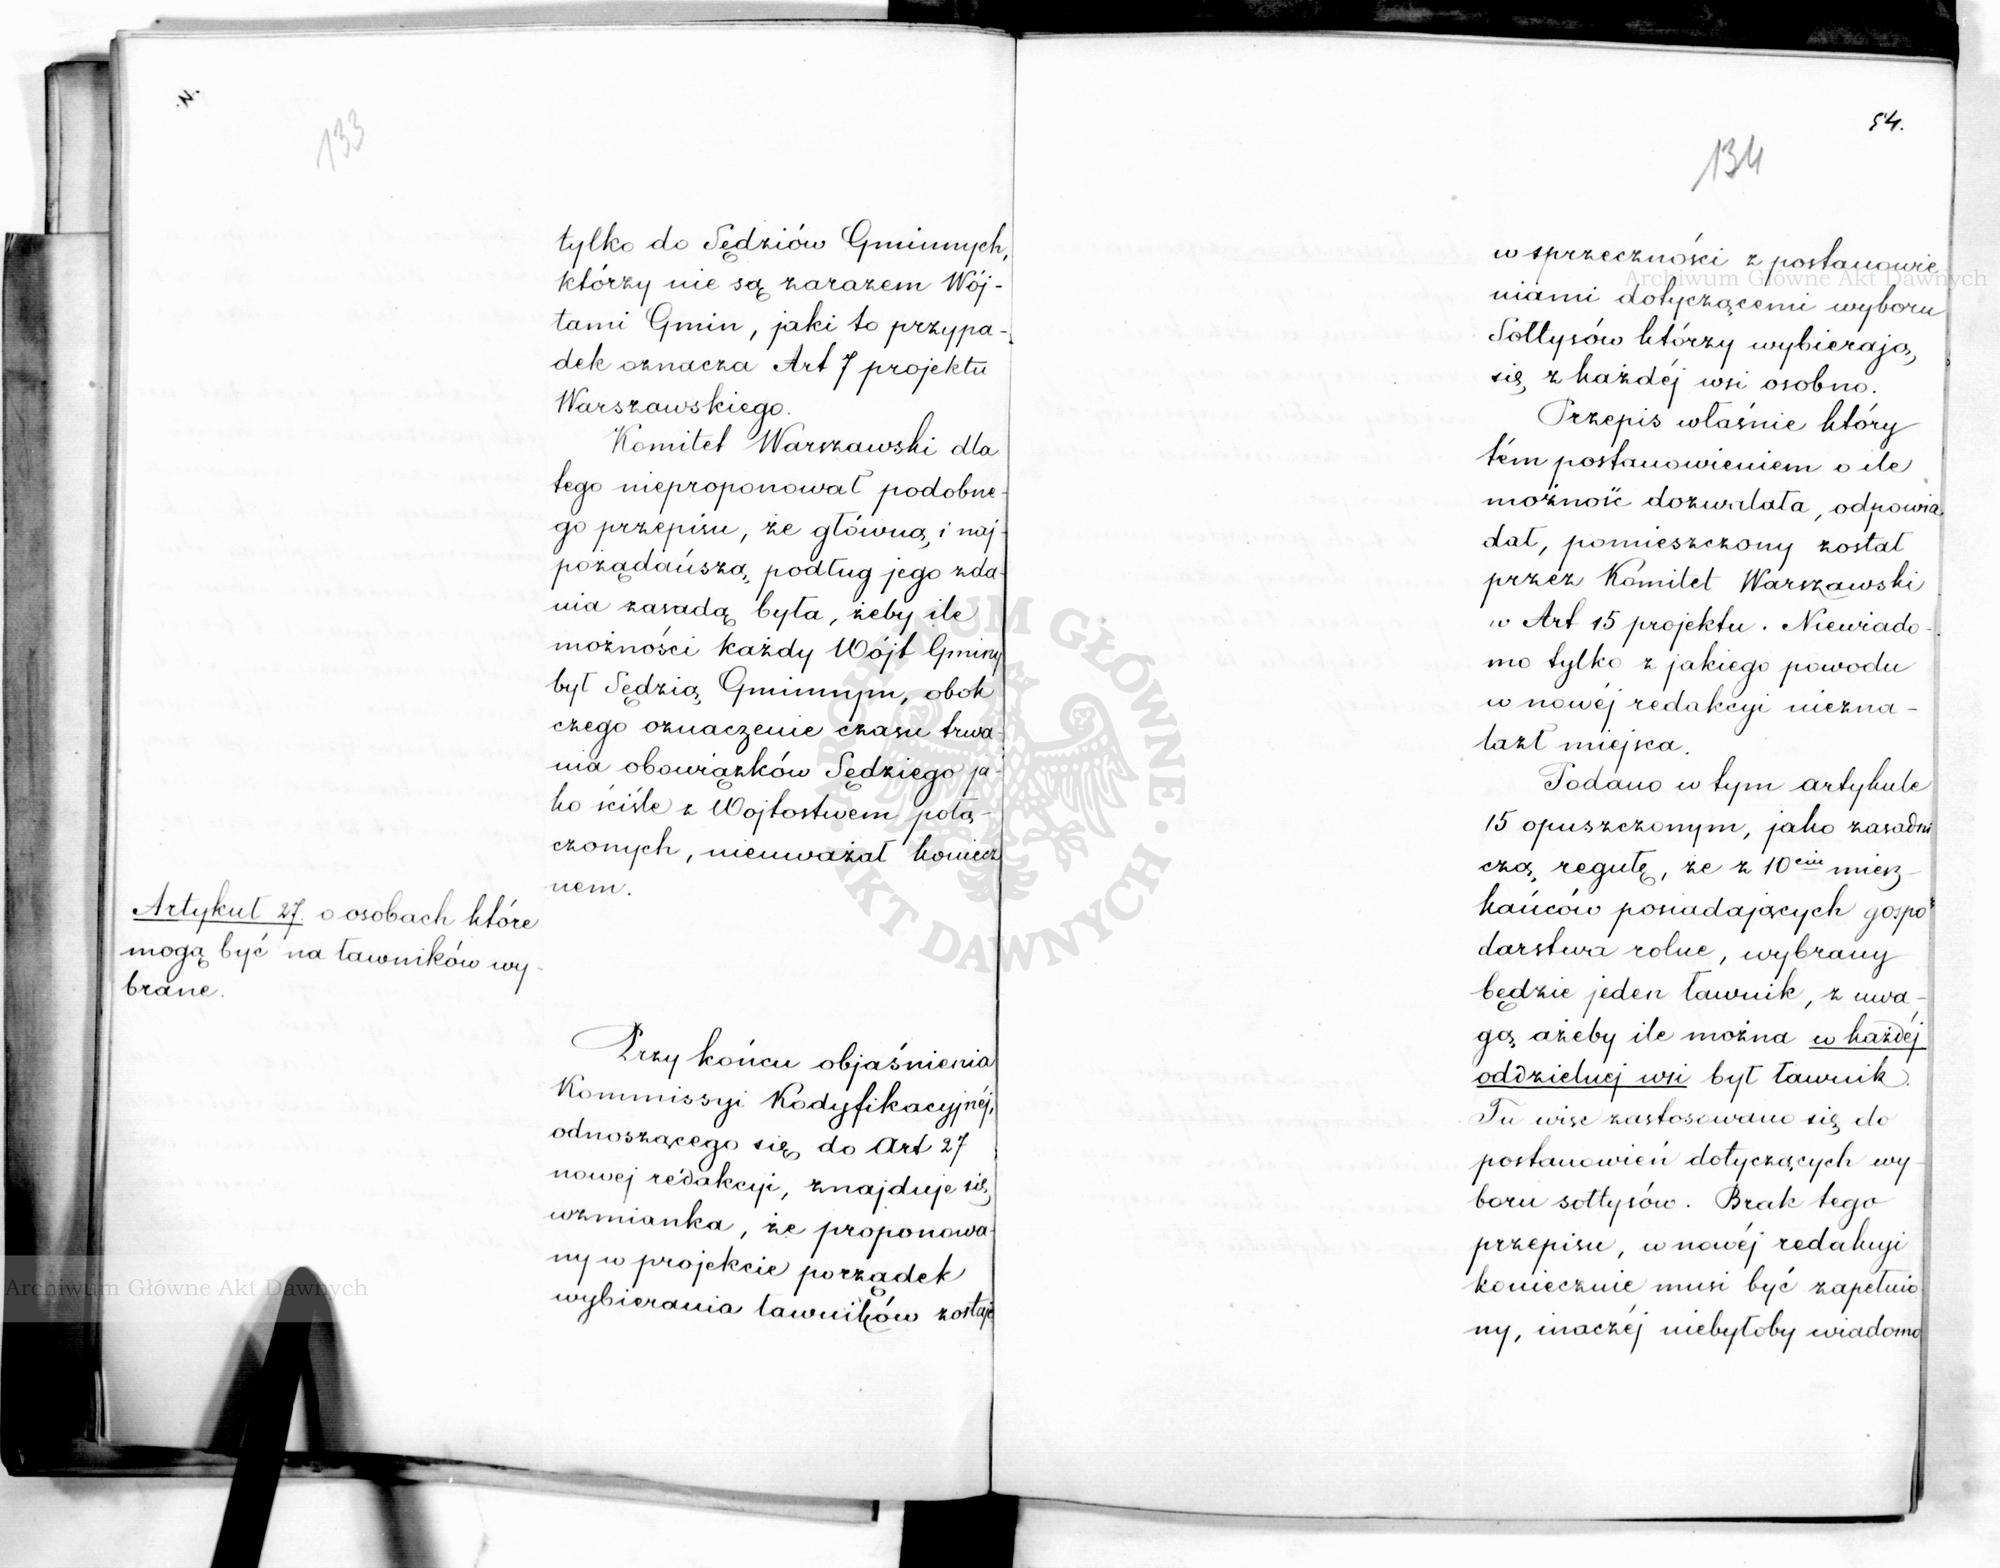 133
tylko do Sędziów Gminnych,
którzy nie są zarazem Wój-
tami Gmin, jaki to przypa-
dek oznacza Art 7 projektu
Warszawskiego.
Komitet Warszawski dla
tego nieproponował podobne-
go przepisu, że główną i naj-
pożądańszą podług jego zda-
nia zasadą była, żeby ile
możności każdy Wójt Gminy
był Sędzią Gminnym, obok
czego oznaczenie czasu trwa-
nia obowiązków Sędziego ja-
ko ściśle z Wojtostwem połą-
czonych, nieuważał koniecz
nem.
Artykuł 27. o osobach które
mogą być na ławników wy-
brane.
Przy końcu objaśnienia
Kommissyi Kodyfikacyjnéj,
odnoszącego się do Art 27
nowej redakcyi, znajduje się
wzmianka, że proponowa-
ny w projekcie porządek
wybierania ławników zostaje
54.
134
w sprzeczności z postanowie
niami dotyczącemi wyboru
Sołtysów którzy wybierają
się z każdéj wsi osobno.
Przepis właśnie który
tém postanowieniem o ile
możność dozwalała, odpowia
dał, pomieszczony został
przez Komitet Warszawski
w Art 15 projektu. Niewiado-
mo tylko z jakiego powodu
w nowéj redakcyi niezna-
lazł miejsca.
Podano w tym artykule
15 opuszczonym, jako zasadni
czą regułę, że z 10ciu miesz-
kańców posiadających gospo
darstwa rolne, wybrany
będzie jeden ławnik, z uwa-
gą ażeby ile można w każdéj
oddzielnej wsi był ławnik.
Tu więc zastosowano się do
postanowień dotyczących wy-
boru sołtysów. Brak tego
przepisu, w nowéj redakcyi
koniecznie musi być zapełnio
ny, inaczéj niebyłoby wiadomo
Archiwum Główne Akt Dawnych
Archiwum Główne Akt Dawnych
ARCHIWUM GŁÓWNE
AKT DAWNYCH